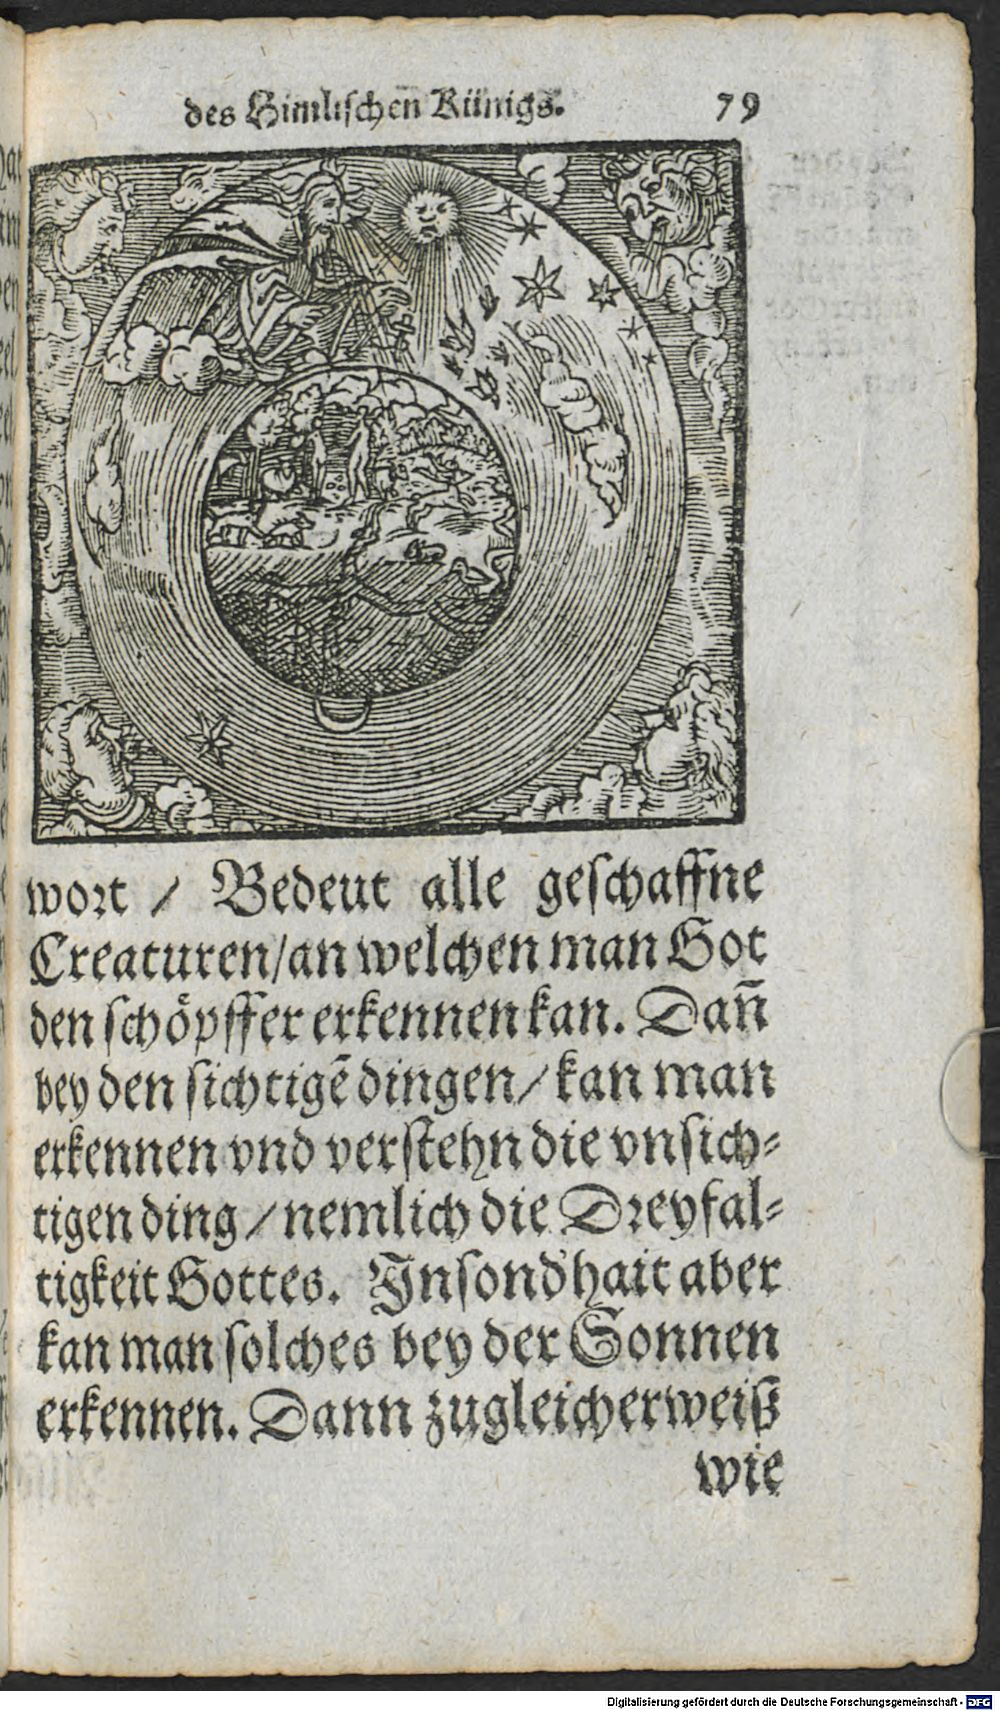 des Himlischen Künigs. 79
wort / Bedeut alle geschaffne
Creaturen/an welchen man Got
den schöpffer erkennen kan. Dañ
bey den sichtigē dingen/ kan man
erkennen vnd verstehn die vnsich-
tigen ding / nemlich die Dreyfal-
tigkeit Gottes. Jnsond'hait aber
kan man solches bey der Sonnen
erkennen. Dann zugleicherweiß
wie
Digitalisierung gefördert durch die Deutsche Forschungsgemeinschaft - DFG